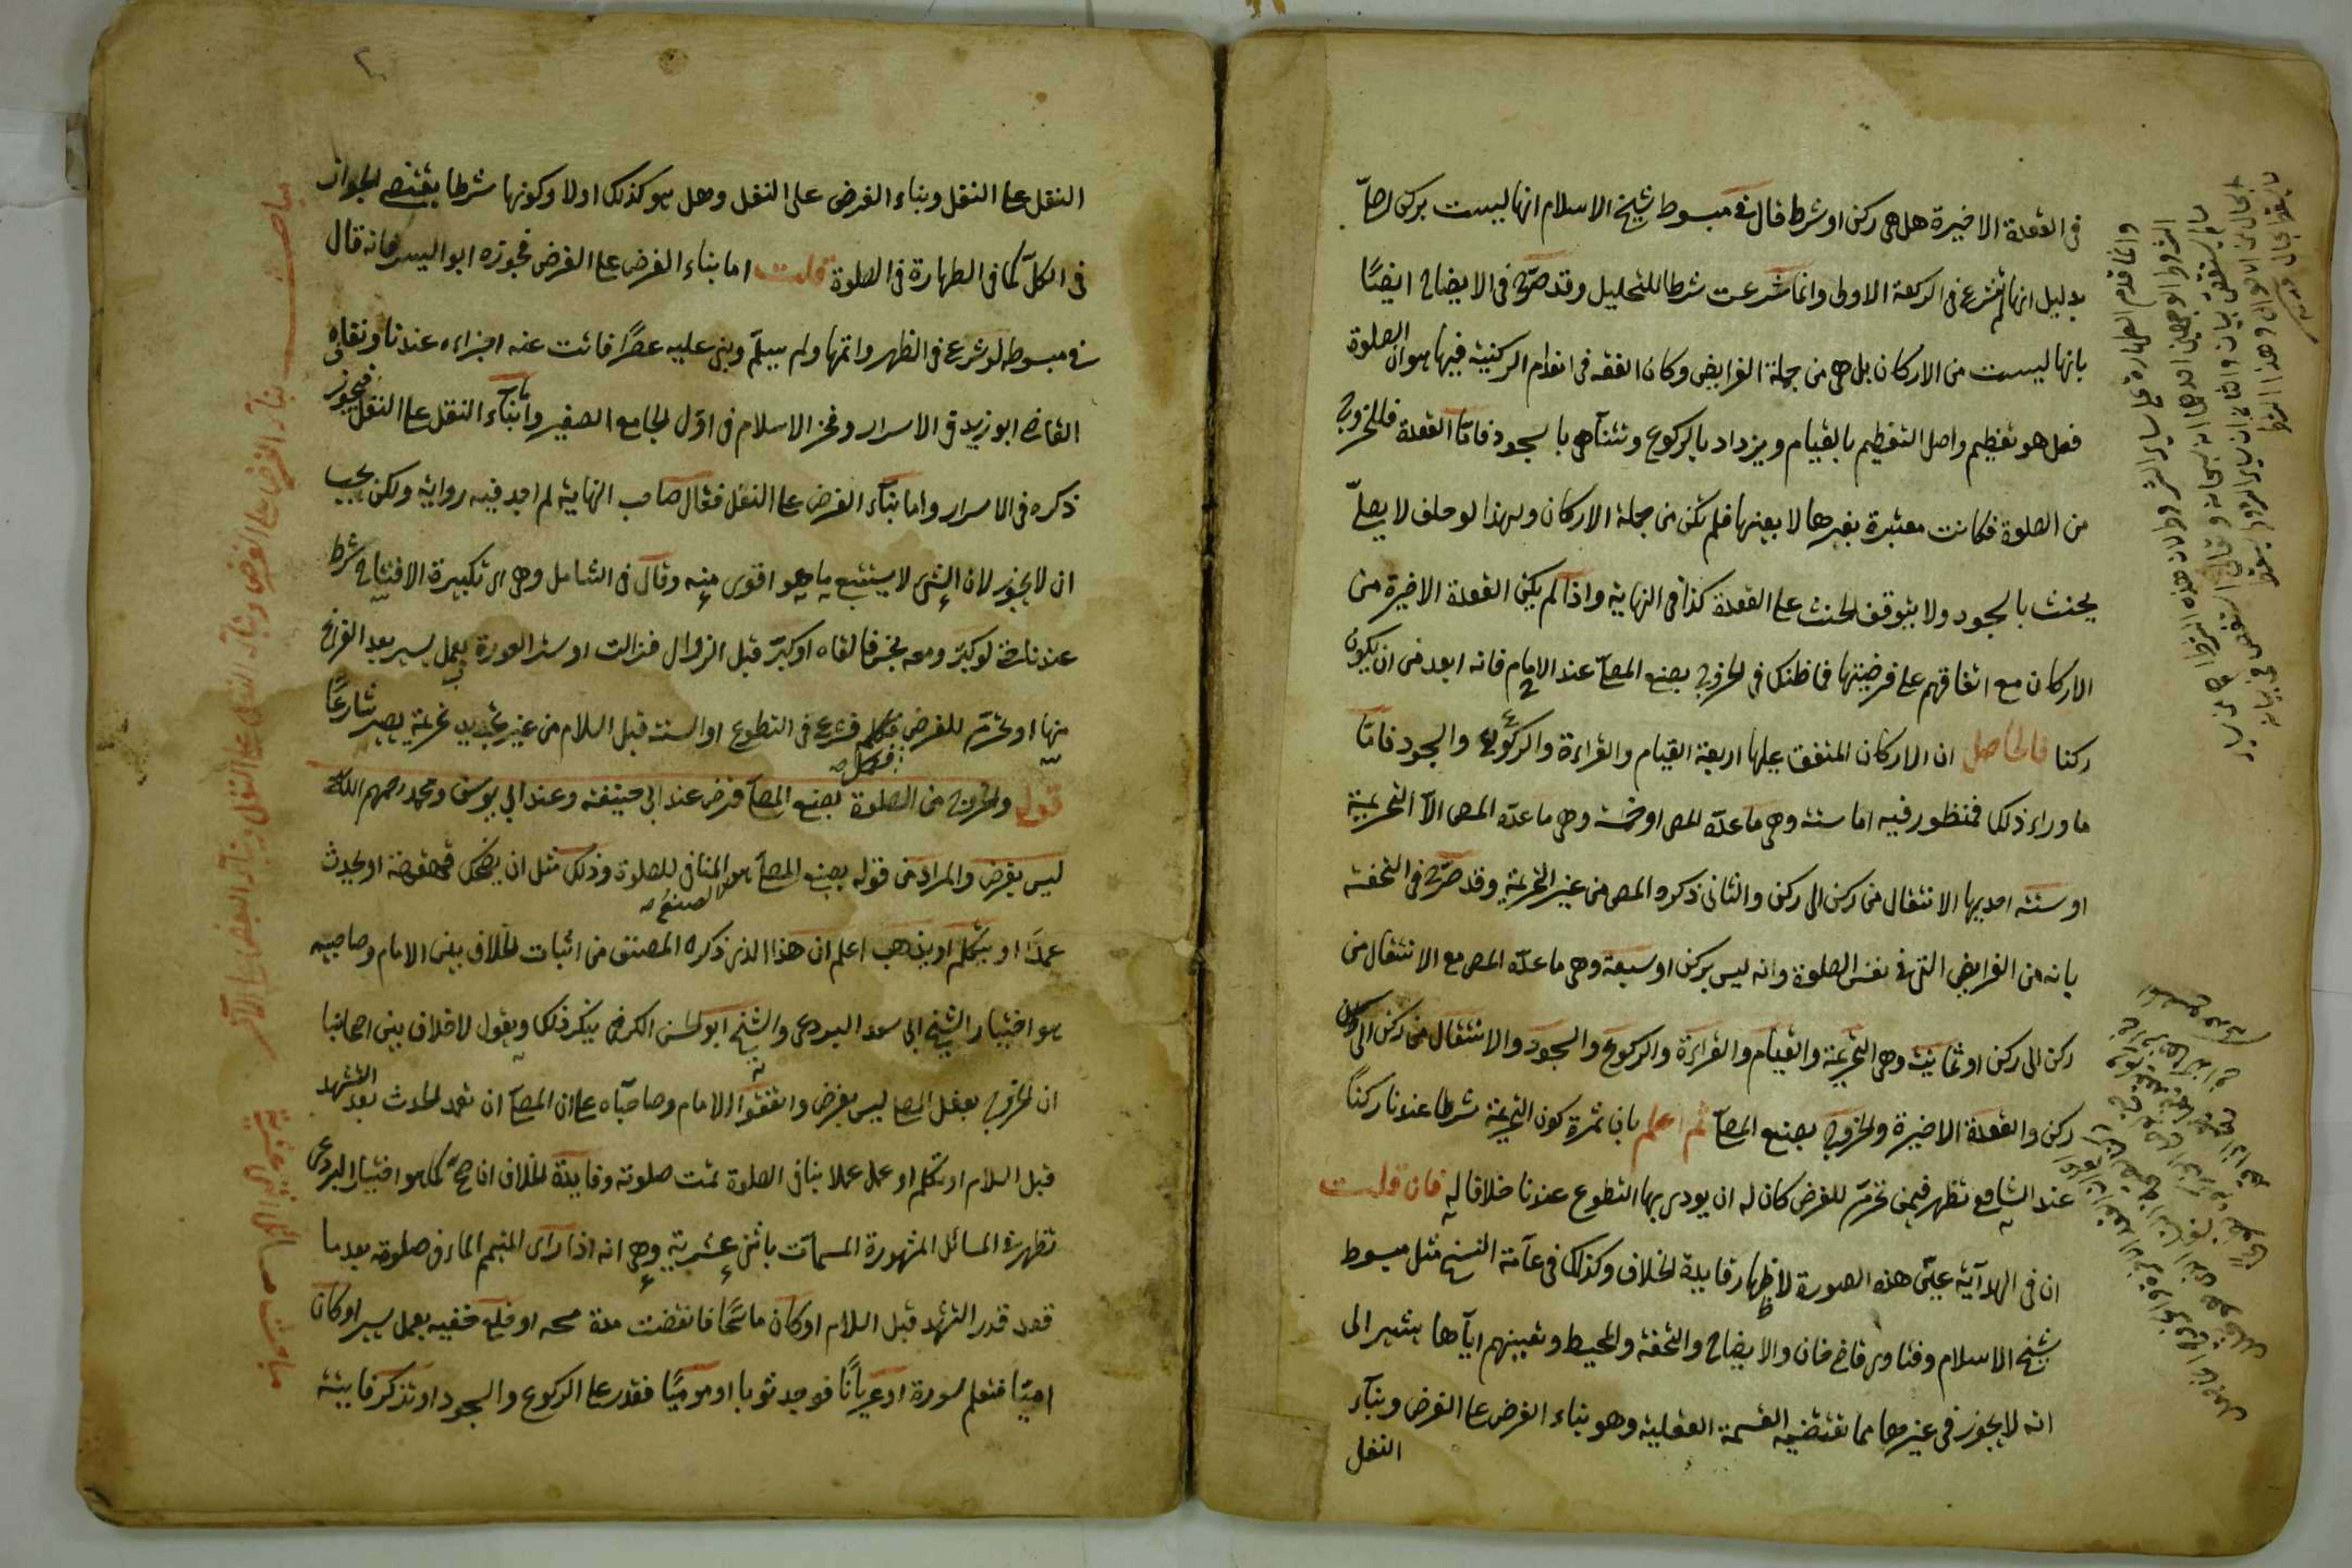 فى القعدة الاخيرة هل هى ركن او شرط قال فى مبسوط شيخ الاسلام انها ليست بركن اصلا
بدليل انها لم تشرع فى الركعة الاولى وانما شرعت شرطا للتحليل وقد صرح فى الايضاح ايضًا
بانها ليست من الاركان بل هى من جملة الفرايض وكان الفقه فى انعدام الركنية فيها هو ان الصلوة
فعل هو تعظيم واصل التعظيم بالقيام ويزداد بالركوع وتتناهى بالسجود فاما القعدة فللخروج
من الصلوة فكانت معتبرة بغيرها لا بعينها فلم تكن من جملة الاركان ولهذا لو حلف لا يصلى
يحنث بالسجود ولا يتوقف الحنث على القعدة كذا فى النهاية واذا لم يكن القعدة الاخيرة من
الاركان مع اتفاقهم على فرضيتها فما ظنك فى الخروج بصنع المصلى عند الامام فانه ابعد من ان يكون
ركنا فالحاصل ان الاركان المتفق عليها اربعة القيام والقراءة والركوع والسجود فاما
ما وراء ذلك فمنظور فيه اما ستة وهى ما عدّه المص او خمسة وهى ما عدّه المص الا التحريمة
او ستة احديها الانتقال من ركن الى ركن والثانى ذكره المص من غير التحريمة وقد صرح فى التحفة
بانه من الفرايض التى فى نفس الصلوة وانه ليس بركن او سبعة وهى ما عدّه المص مع الانتقال من
ركن الى ركن او ثمانية وهى التحريمة والقيام والقراءة والركوع والسجود والانتقال من ركن الى
ركن والقعدة الاخيرة والخروج بصنع المصلى ثم اعلم بان ثمرة كون التحريمة شرطا عندنا ركنًا
عند الشافعى تظهر فيمن تحرم للفرض كان له ان يودى بها التطوع عندنا خلافا له فان قلت
ان فى الهداية عين هذه الصورة لاظهار فايدة الخلاف وكذلك فى عامة النسخ مثل مبسوط
شيخ الاسلام وفتاوى قاضى خان والايضاح والتحفة والمحيط وتعيينهم اياها يشير الى
انه لا يجوز فى غيرها مما تقتضيه القسمة العقلية وهو بناء الفرض على الفرض وبناء
النفل
النفل على النفل وبناء الفرض على النفل وهل هو كذلك اولا وكونها شرطا يقتضى الجواز
فى الكل كما فى الطهارة فى الصلوة قلت اما بناء الفرض على الفرض فجوزه ابو اليسر فانه قال
فى مبسوطه لو شرع فى الظهر واتمها ولم يسلم وبنى عليه عصرًا فائت عنه اجزاءه عندنا ونفاه
القاضى ابو زيد فى الاسرار وفخر الاسلام فى اوّل الجامع الصغير واما بناء النفل على النفل فيجوز
ذكره فى الاسرار واما بناء الفرض على النفل فقال صاحب النهاية لم اجد فيه رواية ولكن يجب
ان لا يجوز لان الشئ لا يستتبع ما هو اقوى منه وقال فى الشامل وهى اى تكبيرة الافتتاح شرط
عندنا حتى لو كبّر ومعه نجس فالقاه او كبّر قبل الزوال فزالت او ستر العورة بعمل يسير بعد الفراغ
منها او تحرم للفرض فشرع فى التطوع او السنة قبل السلام من غير تجديد تحريمة يصير شارعًا
قوله والخروج من الصلوة بصنع المصلى فرض عند ابى حنيفة وعند ابى يوسف ومحمد رحمهم الله
ليس بفرض والمراد من قوله بصنع المصلى هو المنافى للصلوة وذلك مثل ان يضحك قهقهة او يحدث
عمدًا او يتكلم او يذهب اعلم ان هذا الذى ذكره المصنف من اثبات الخلاف بين الامام وصاحبيه
هو اختيار الشيخ ابى سعد البردعى والشيخ ابو الحسن الكرخى ينكر ذلك ويقول لا خلاف بين اصحابنا
ان الخروج بفعل المصلى ليس بفرض واتفقوا الامام وصاحباه على ان المصلى ان تعمد الحدث بعد التشهد
قبل السلام او تكلم او عمل عملا ينافى الصلوة تمت صلوته وفايدة الخلاف ان صح كما هو اختيار البردعى
تظهر فى المسائل المشهورة المسمات باثنى عشرية وهى انه اذا راى المتيمم الماء فى صلوته بعد ما
قعد قدر التشهد قبل السلام او كان ماسحًا فانقضت مدة مسحه او خلع خفيه بعمل يسير او كان
اميًا فتعلم سورة او عريانًا فوجد ثوبا او موميًا فقدر على الركوع والسجود او تذكر فايتة
مباحث بناء الفرض على الفرض وبناء النفل على النفل وبناء البعض على الآخر